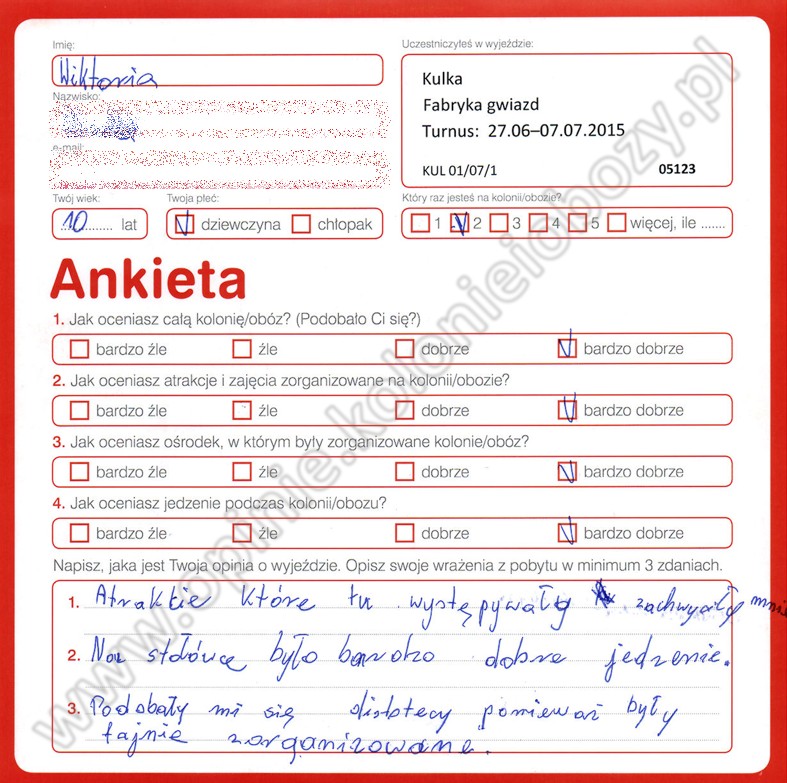 Imię:
Uczestniczyłeś w wyjeździe:
Wiktoria
Kulka
Fabryka gwiazd
Turnus: 27.06–07.07.2015
KUL 01/07/1 05123
Nazwisko:
e-mail:
Twój wiek: Twoja płeć: Który raz jesteś na kolonii/obozie?
10 lat dziewczyna chłopak 1 2 3 4 5 więcej, ile .......
Ankieta
1. Jak oceniasz całą kolonię/obóz? (Podobało Ci się?)
bardzo źle źle dobrze bardzo dobrze
2. Jak oceniasz atrakcje i zajęcia zorganizowane na kolonii/obozie?
bardzo źle źle dobrze bardzo dobrze
3. Jak oceniasz ośrodek, w którym były zorganizowane kolonie/obóz?
bardzo źle źle dobrze bardzo dobrze
4. Jak oceniasz jedzenie podczas kolonii/obozu?
bardzo źle źle dobrze bardzo dobrze
Napisz, jaka jest Twoja opinia o wyjeździe. Opisz swoje wrażenia z pobytu w minimum 3 zdaniach.
1. Atrakcie które tu występywały zachwyciły mnie
2. Na stołówce było bardzo dobre jedzenie.
3. Podobały mi się distotecy poniewarz były
fajnie zorganizowane.
www.opinie.kolonieiobozy.pl